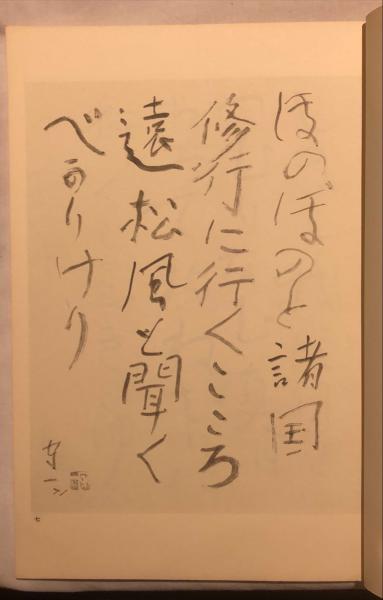 ほのぼのと諸国
修行に行くこころ
遠松風も聞く
べかりけり
七